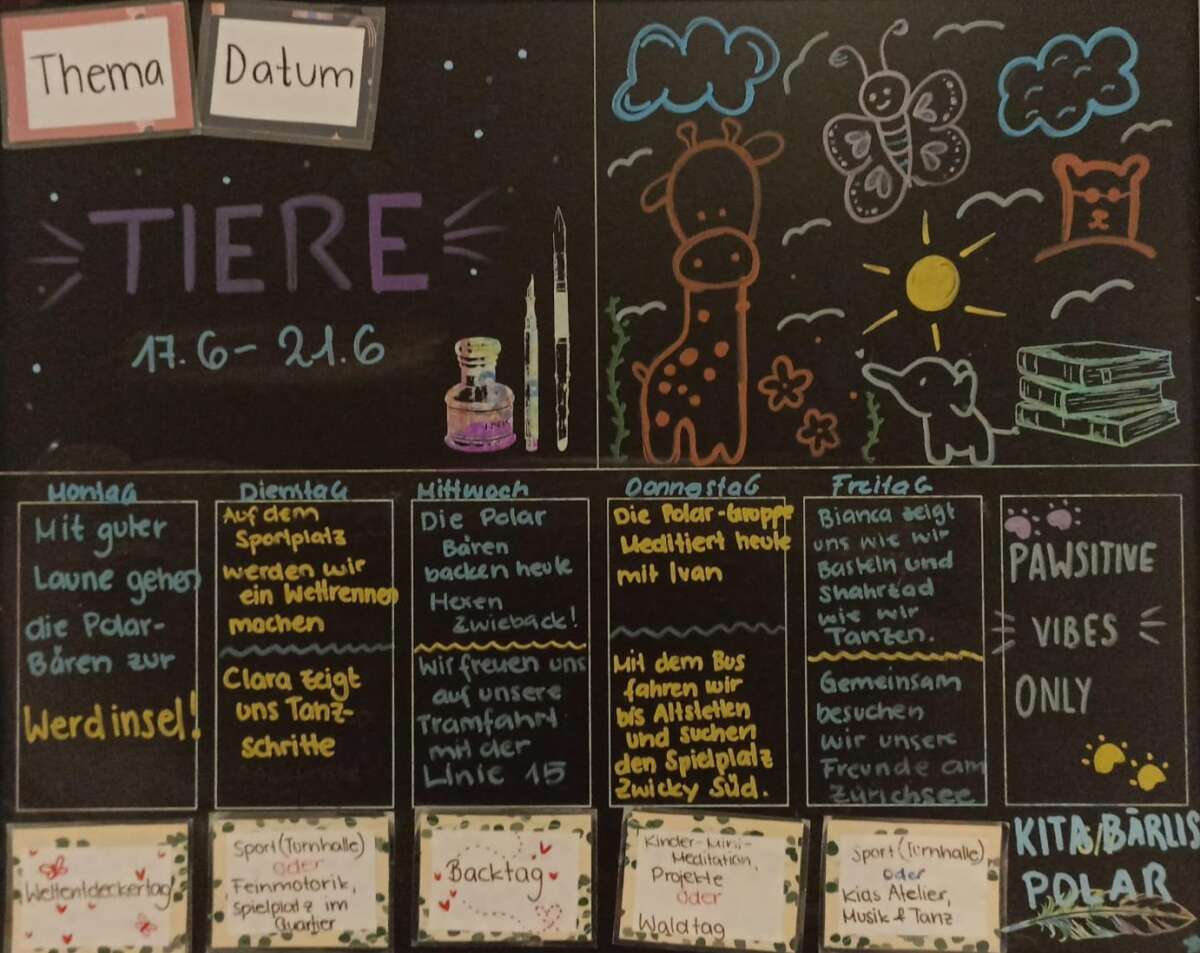 Thema
Datum
TIERE
17.6 - 21.6
Montag
Mit guter
Laune gehen
die Polar-
Bären zur
Werdinsel!
Weltentdeckertag
Dienstag
Auf dem
Sportplatz
werden wir
ein Wettrennen
machen
Clara zeigt
uns Tanz-
schritte
Sport (Turnhalle)
oder
Feinmotorik,
Spielplatz im
Quartier
Mittwoch
Die Polar
Bären
backen heute
Hexen
Zwieback!
Wir freuen uns
auf unsere
Tramfahrt
mit der
Linie 15
Backtag
Donnerstag
Die Polar-Gruppe
Meditiert heute
mit Ivan
Mit dem Bus
fahren wir
bis Altstetten
und suchen
den Spielplatz
Zwicky Süd.
Kinder-Mini-
Meditation,
Projekte
oder
Waldtag
Freitag
Bianca zeigt
uns wie wir
Basteln und
Shahrzad
wie wir
Tanzen.
Gemeinsam
besuchen
wir unsere
Freunde am
Zürichsee
Sport (Turnhalle)
oder
Kids Atelier,
Musik & Tanz
PAWSITIVE
VIBES
ONLY
KITA/BÄRLIS
POLAR